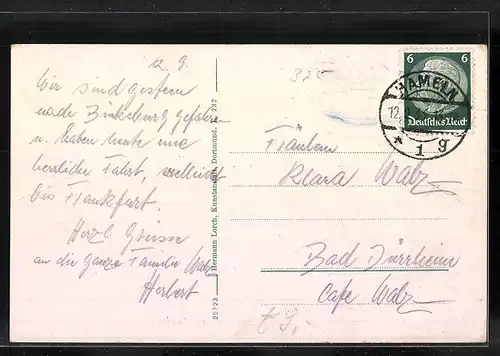 12. 9.
Wir sind gestern
nach Bückeburg gefahren
u. haben heute eine
herrliche Fahrt, vielleicht
bis Frankfurt.
Herzl. Grüsse
an die ganze Familie Walz
Herbert
25723 Hermann Lorch, Kunstanstalt, Dortmund. 282
325
6 6
Deutsches Reich
HAMELN
12.
* 1 g
Fräulein
Klara Walz
Bad Dürrheim
Cafe Walz